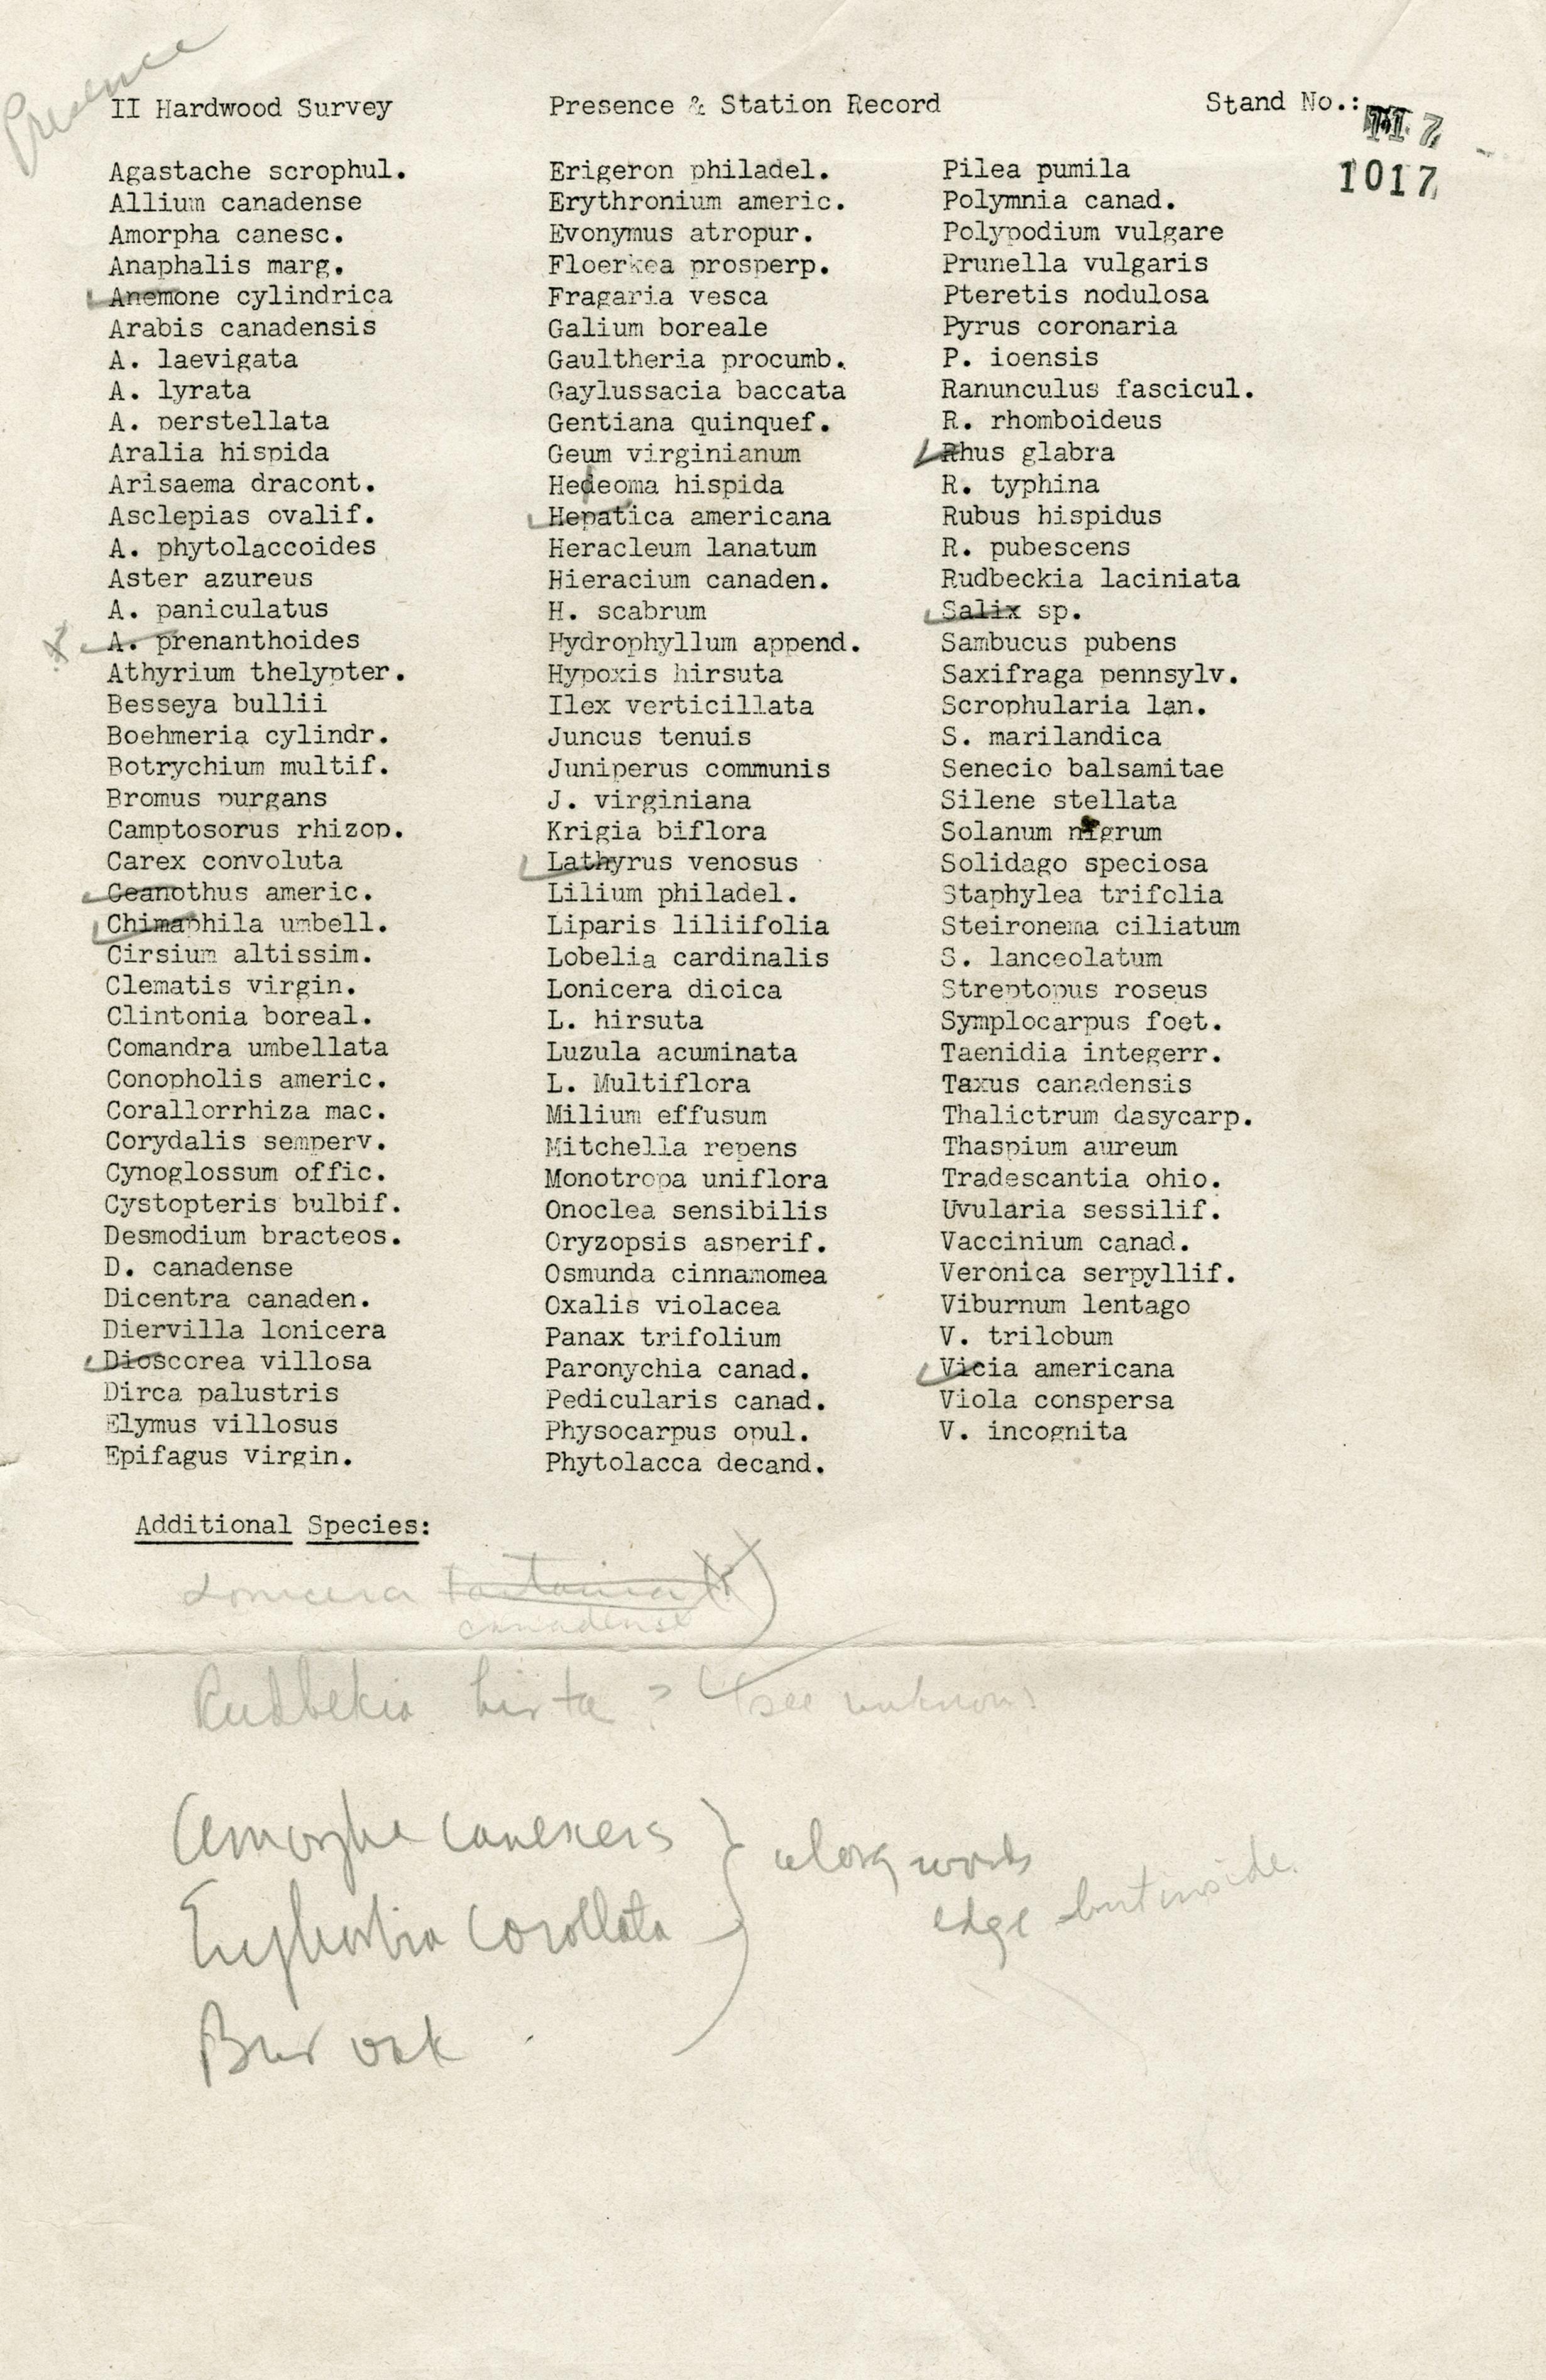 Presence
II Hardwood Survey
Presence & Station Record
Stand No.:
1017
Agastache scrophul.
Allium canadense
Amorpha canesc.
Anaphalis marg.
Anemone cylindrica
Arabis canadensis
A. laevigata
A. lyrata
A. perstellata
Aralia hispida
Arisaema dracont.
Asclepias ovalif.
A. phytolaccoides
Aster azureus
A. paniculatus
x A. prenanthoides
Athyrium thelypter.
Besseya bullii
Boehmeria cylindr.
Botrychium multif.
Bromus purgans
Camptosorus rhizop.
Carex convoluta
Ceanothus americ.
Chimaphila umbell.
Cirsium altissim.
Clematis virgin.
Clintonia boreal.
Comandra umbellata
Conopholis americ.
Corallorrhiza mac.
Corydalis semperv.
Cynoglossum offic.
Cystopteris bulbif.
Desmodium bracteos.
D. canadense
Dicentra canaden.
Diervilla lonicera
Dioscorea villosa
Dirca palustris
Elymus villosus
Epifagus virgin.
Erigeron philadel.
Erythronium americ.
Evonymus atropur.
Floerkea prosperp.
Fragaria vesca
Galium boreale
Gaultheria procumb.
Gaylussacia baccata
Gentiana quinquef.
Geum virginianum
Hedeoma hispida
Hepatica americana
Heracleum lanatum
Hieracium canaden.
H. scabrum
Hydrophyllum append.
Hypoxis hirsuta
Ilex verticillata
Juncus tenuis
Juniperus communis
J. virginiana
Krigia biflora
Lathyrus venosus
Lilium philadel.
Liparis liliifolia
Lobelia cardinalis
Lonicera dioica
L. hirsuta
Luzula acuminata
L. Multiflora
Milium effusum
Mitchella repens
Monotropa uniflora
Onoclea sensibilis
Oryzopsis asperif.
Osmunda cinnamomea
Oxalis violacea
Panax trifolium
Paronychia canad.
Pedicularis canad.
Physocarpus opul.
Phytolacca decand.
Pilea pumila
Polymnia canad.
Polypodium vulgare
Prunella vulgaris
Pteretis nodulosa
Pyrus coronaria
P. ioensis
Ranunculus fascicul.
R. rhomboideus
Rhus glabra
R. typhina
Rubus hispidus
R. pubescens
Rudbeckia laciniata
Salix sp.
Sambucus pubens
Saxifraga pennsylv.
Scrophularia lan.
S. marilandica
Senecio balsamitae
Silene stellata
Solanum nigrum
Solidago speciosa
Staphylea trifolia
Steironema ciliatum
S. lanceolatum
Streptopus roseus
Symplocarpus foet.
Taenidia integerr.
Taxus canadensis
Thalictrum dasycarp.
Thaspium aureum
Tradescantia ohio.
Uvularia sessilif.
Vaccinium canad.
Veronica serpyllif.
Viburnum lentago
V. trilobum
Vicia americana
Viola conspersa
V. incognita
Additional Species:
Lonicera tartarica
canadense
Rudbekia hirta ? (see unknown)
Amorpha canescens
along woods
edge but inside.
Euphorbia corollata
Bur oak